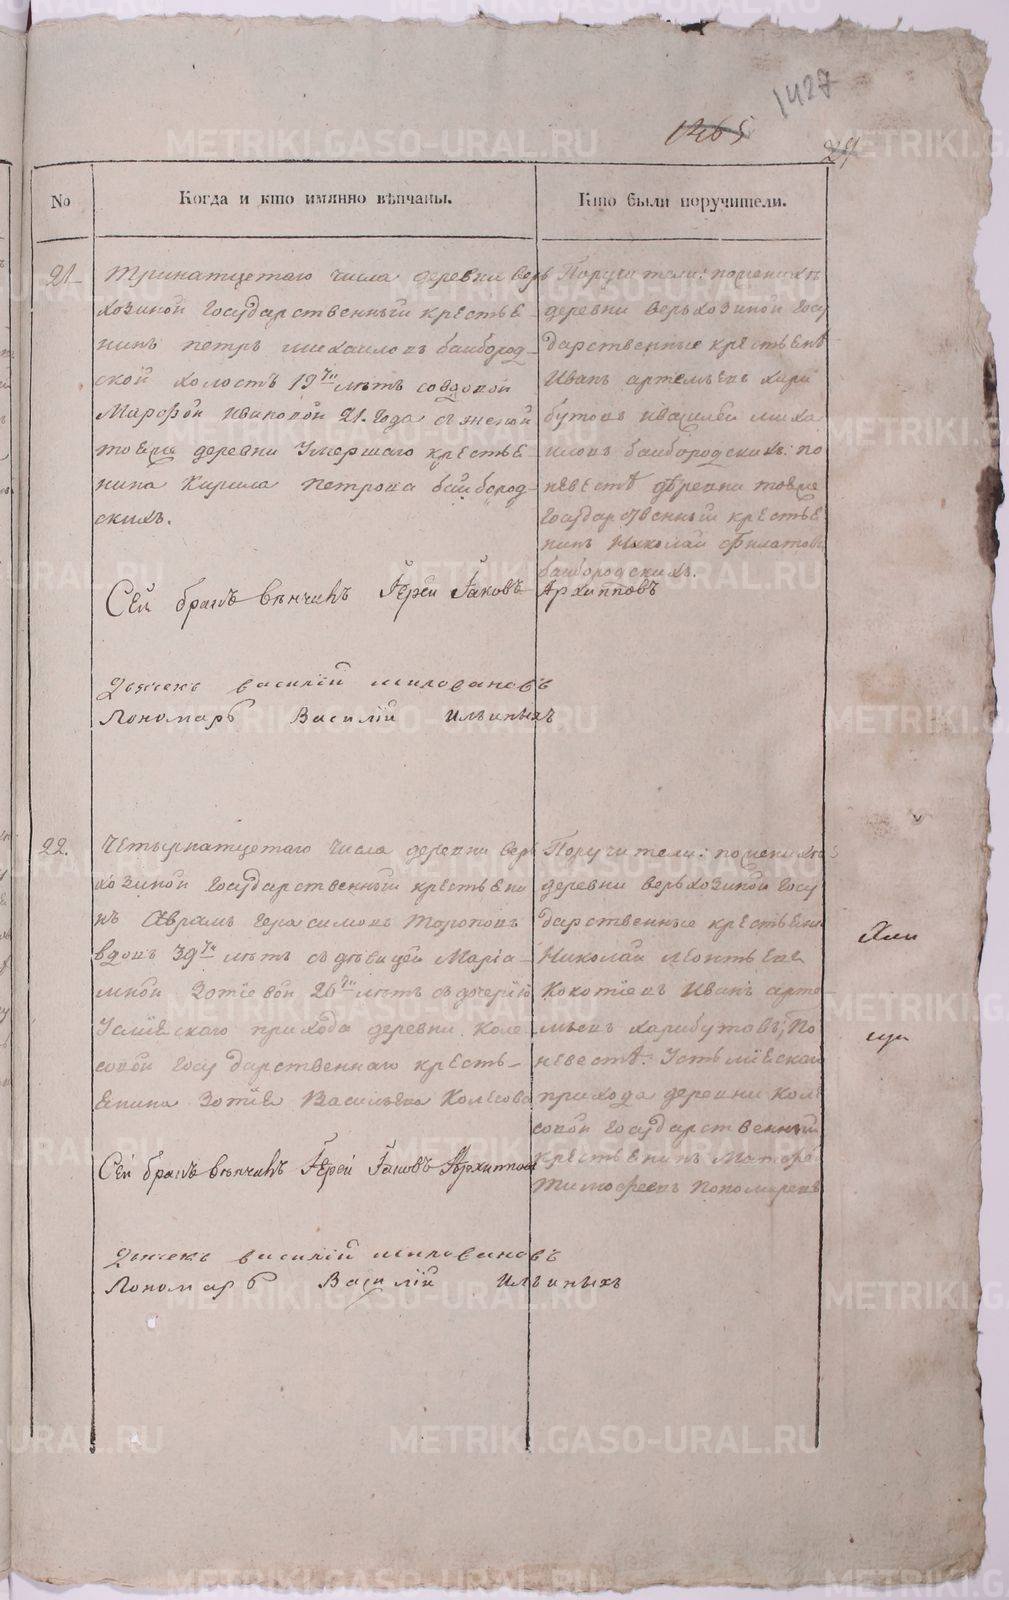 1427
1465
No
Когда и кто имянно вѣнчаны.
Кто были поручители.
21
Тринатцетаго числа деревни верь
хозиной государственный крестье
нинъ петръ михаиловъ байбород-
ской холостъ 19ти лѣтъ совдовой
Марѳой ивановой 21. года сженой
тоеже деревни Умершаго крестье
нина Кирила петрова байбород-
скихъ.
Сей бракъ вѣнчалъ Іерей Іаковъ Архипповъ
Дьячекъ василій миловановъ
Пономарь Василій Ильиныхъ
Поручители: поженихѣ
деревни верьхозиной госу
дарственные крестьенѣ
Иванъ артемьевъ хари
бутовъ ивасилей миха
иловъ байбородскихъ: по
невестѣ деревни тоеже
государственный крестье
нинъ Николай филатовъ
байбородскихъ.
22.
Четырнатцетаго числа деревни верь
хозиной государственный крестьени
нъ Аврамъ герасимовъ Тороповъ
вдовъ 39ти лѣтъ сдѣвицей Маріа-
мной Зотіевой 26ти лѣтъ сдочерию
Усмиевского прихода деревни Коле
совой государственнаго кресть-
енина Зотіе Васильева Колесова
Сей бракъ вѣнчалъ Іерей Іаковъ Архиппов
Дьячекъ василій миловановъ
Пономарь Василій Ильиныхъ
Поручители: поженихѣ
деревни верьхозиной госу
дарственные крестьени
Николай леонтьевъ
Кокотіевъ Иванъ арте
мьевъ харибутовъ; По
невестѣ: Усть міевскаго
прихода деревни коле
совой государственный
крестьенинъ Матфе
тимофеевъ Пономаревъ